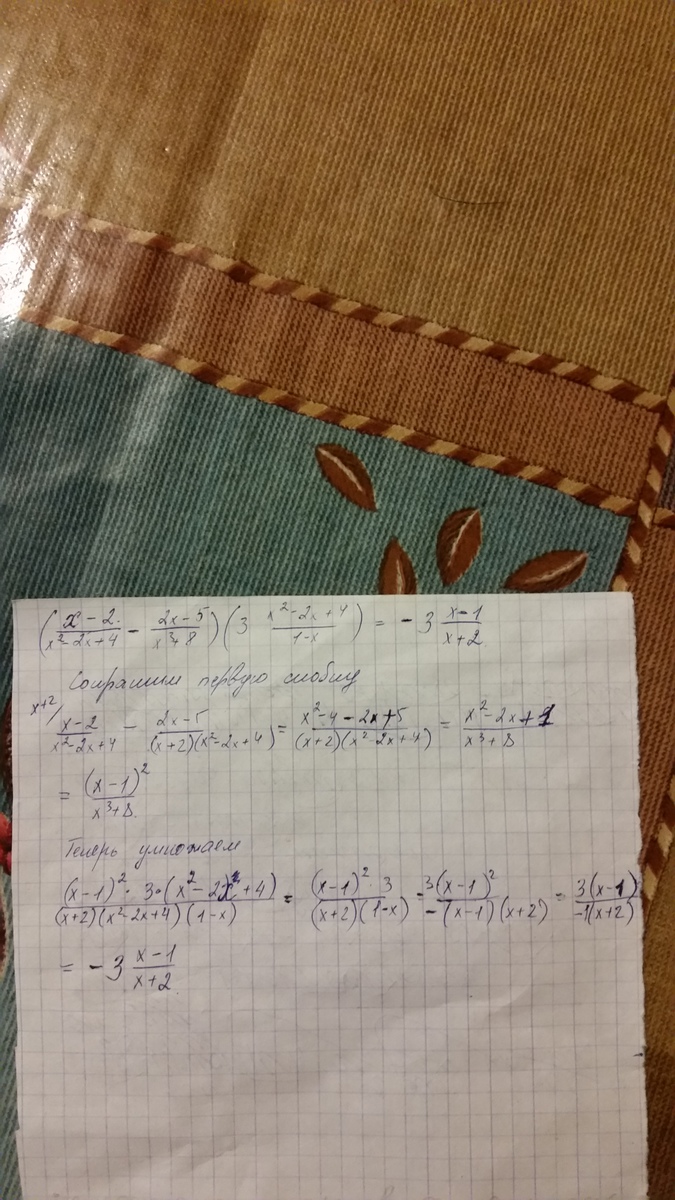 (x-2/x²-2x+4 - 2x-5/x³+8)(3 x²-2x+4/1-x) = -3 x-1/x+2
первую скобку
x+2/ x-2/x²-2x+4 - 2x-5/(x+2)(x²-2x+4) = x²-4-2x+5/(x+2)(x²-2x+4) = x²-2x+1/x³+8
= (x-1)²/x³+8
Теперь умножаем
(x-1)²·3·(x²-2x+4)/(x+2)(x²-2x+4)(1-x) = (x-1)²·3/(x+2)(1-x) = 3(x-1)²/-(x-1)(x+2) = 3(x-1)/-1(x+2)
= -3 x-1/x+2